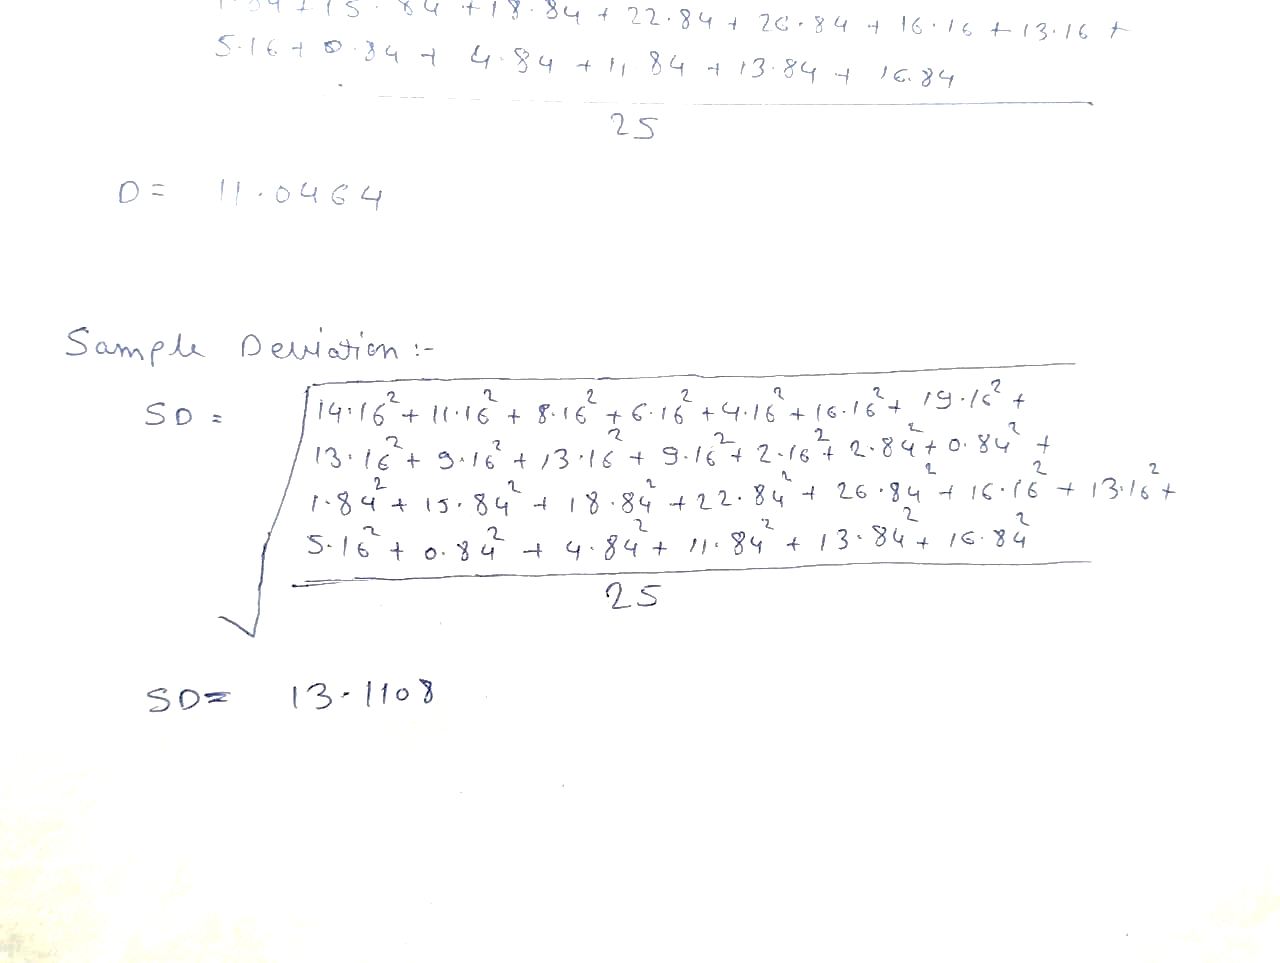 1.84 + 15.84 + 18.84 + 22.84 + 26.84 + 16.16 + 13.16 +
5.16 + 0.84 + 4.84 + 11.84 + 13.84 + 16.84
25
D = 11.0464
Sample Deviation :-
SD = √ 14.16² + 11.16² + 8.16² + 6.16² + 4.16² + 16.16² + 19.16² +
13.16² + 9.16² + 13.16² + 9.16² + 2.16² + 2.84² + 0.84² +
1.84² + 15.84² + 18.84² + 22.84² + 26.84² + 16.16² + 13.16² +
5.16² + 0.84² + 4.84² + 11.84² + 13.84² + 16.84²
25
SD = 13.1108